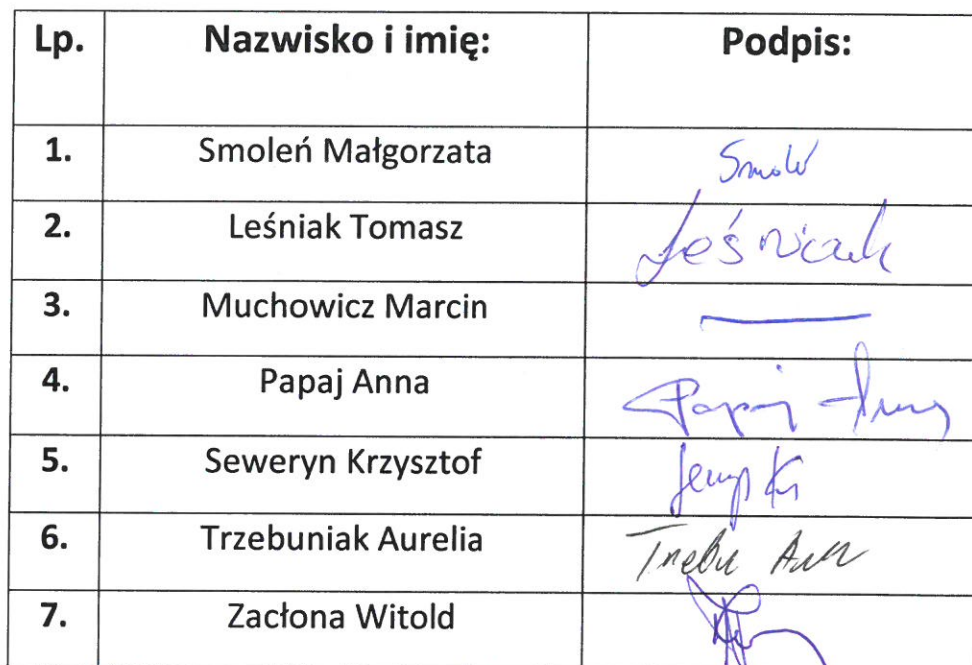 Lp. Nazwisko i imię: Podpis:
1. Smoleń Małgorzata
2. Leśniak Tomasz Leśniak
3. Muchowicz Marcin
4. Papaj Anna Papaj
5. Seweryn Krzysztof
6. Trzebuniak Aurelia
7. Zacłona Witold